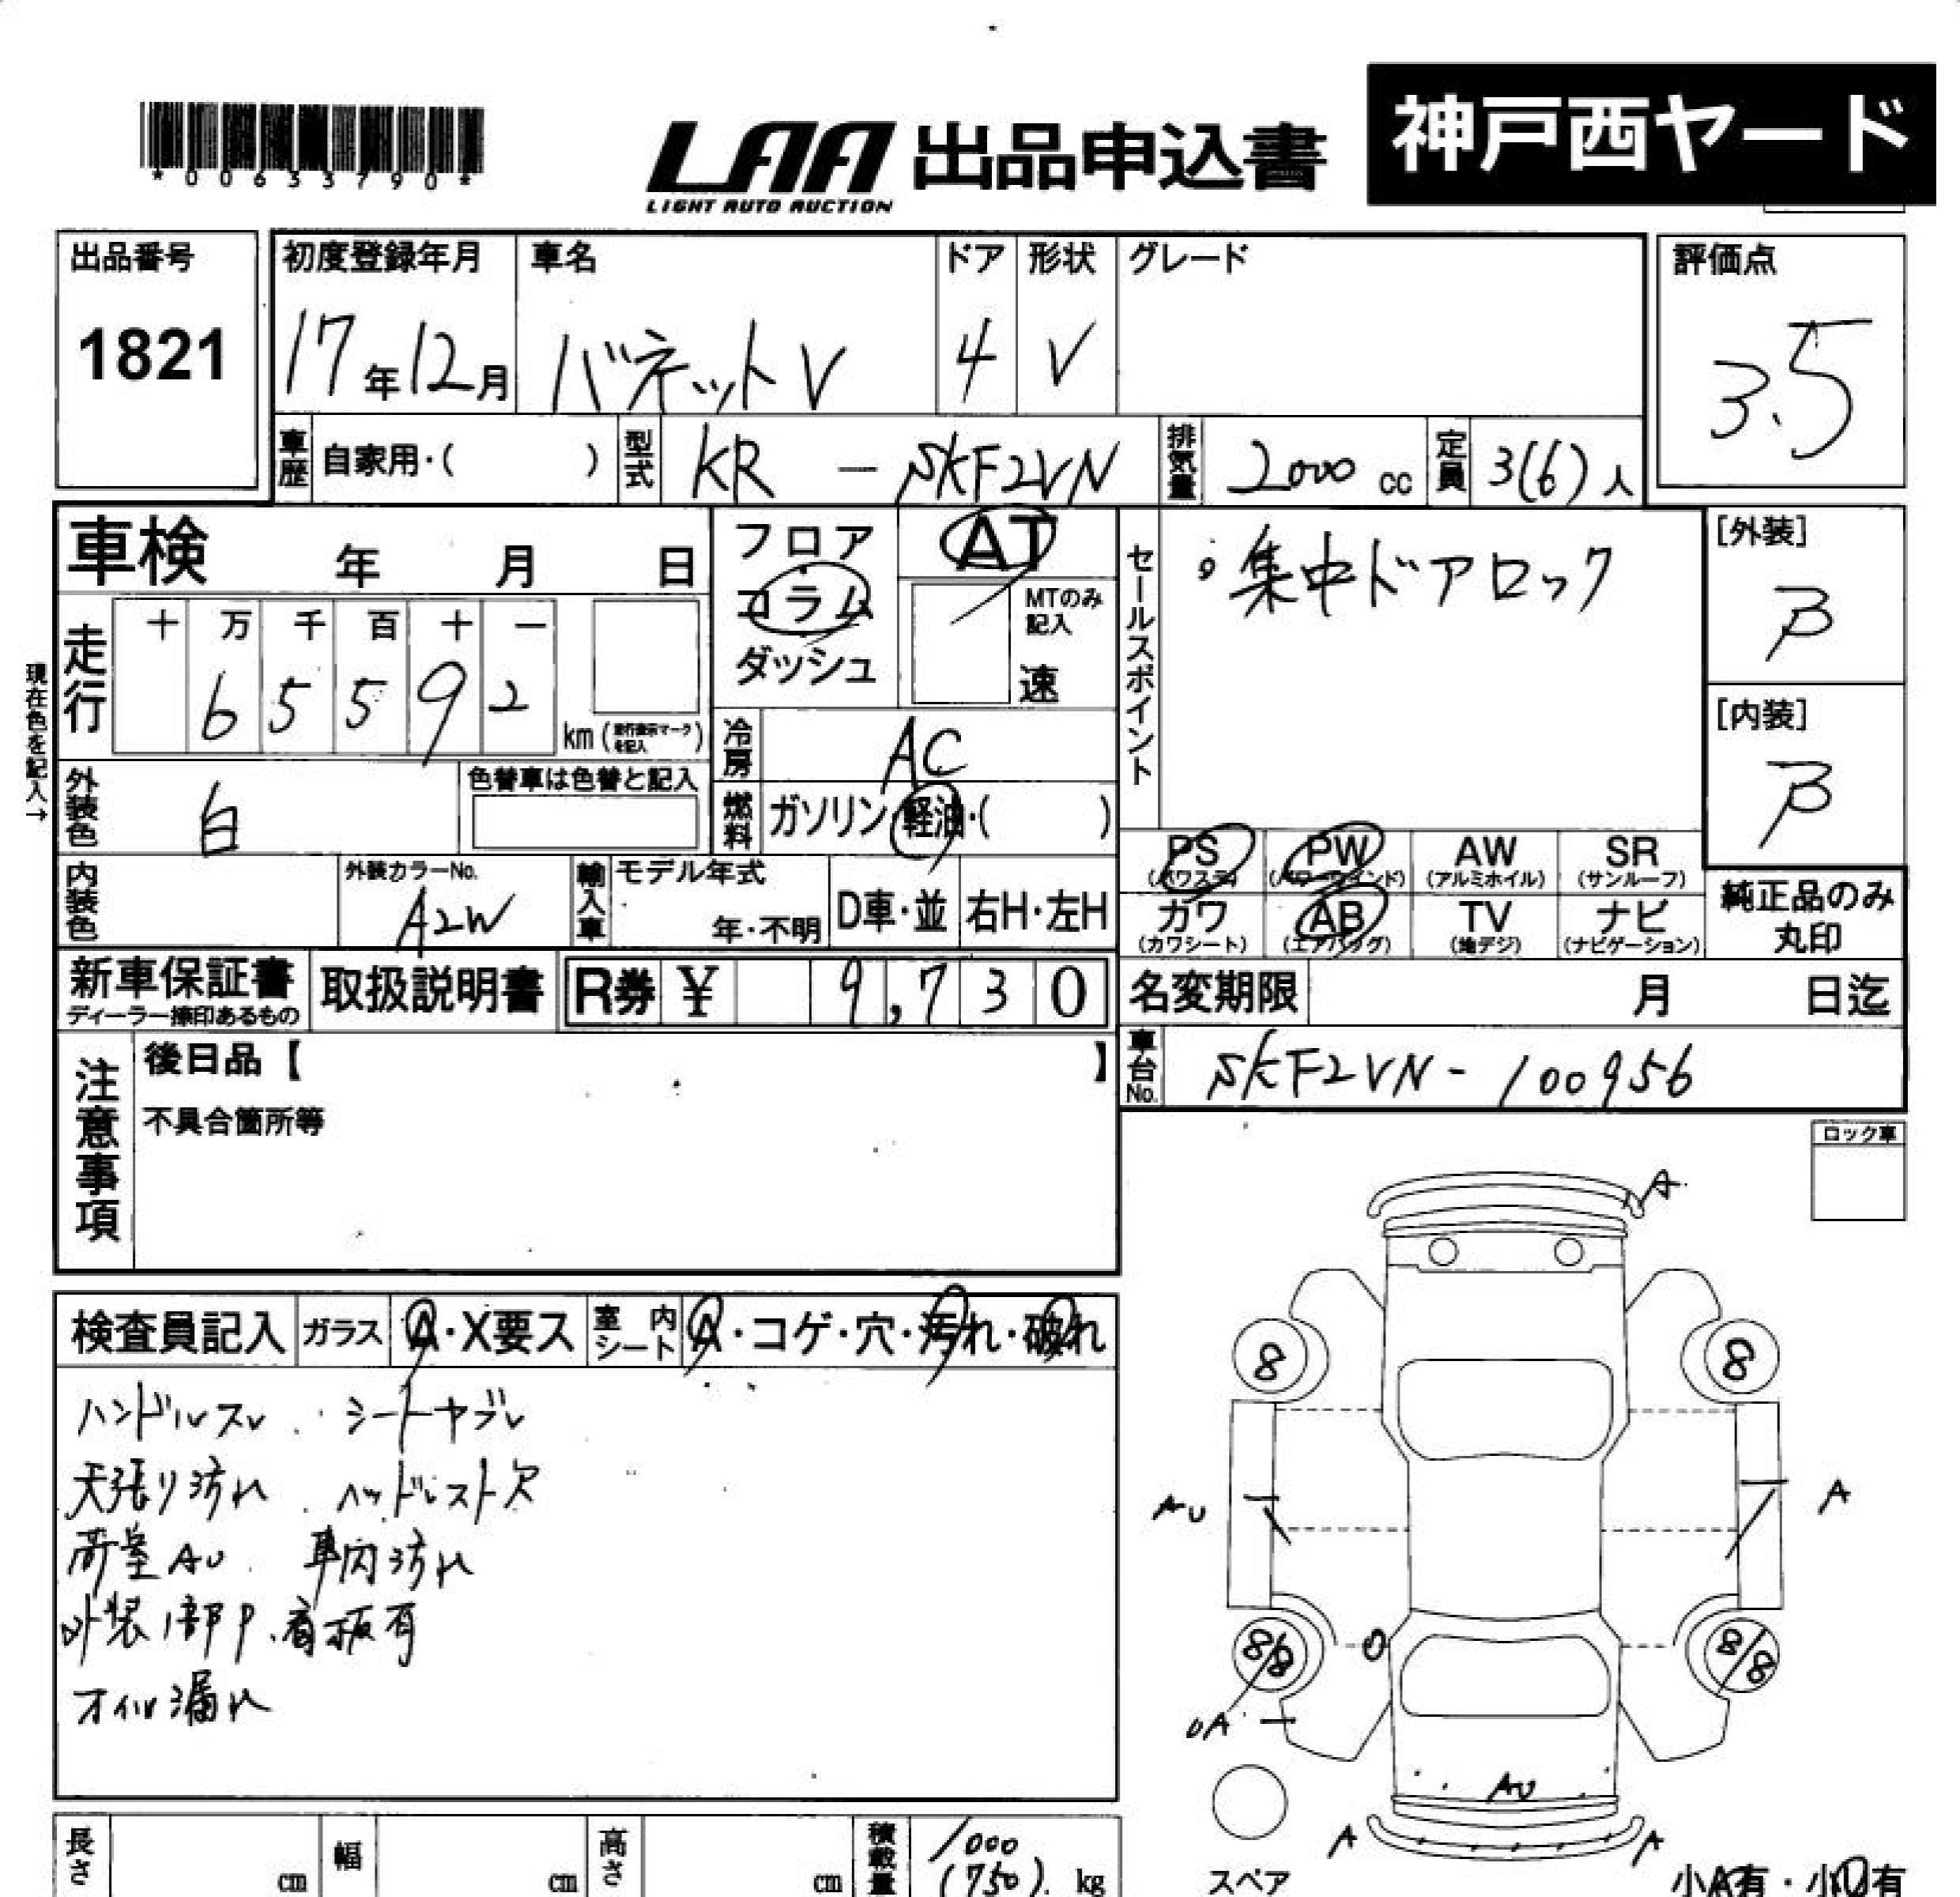 *00633790*
LAA
LIGHT AUTO AUCTION
出品申込書
神戸西ヤード
出品番号
1821
初度登録年月
17年12月
車名
バネットV
ドア
4
形状
V
グレード
評価点
3.5
車歴 自家用・( )
型式 KR - SKF2VN
排気量 2000 cc
定員 3(6)人
車検 年 月 日
フロア
コラム
ダッシュ
AT
MTのみ記入
速
セールスポイント
・集中ドアロック
[外装]
B
[内装]
B
現在色を記入→
走行
十 万 千 百 十 一
6 5 5 9 2
km (走行表示マークを記入)
冷房 AC
燃料 ガソリン・軽油・( )
外装色 白
色替車は色替と記入
内装色
外装カラーNo.
A2W
輸入車
モデル年式
年・不明
D車・並
右H・左H
PS
(パワステ)
PW
(パワーウインド)
AW
(アルミホイル)
SR
(サンルーフ)
カワ
(カワシート)
AB
(エアバッグ)
TV
(地デジ)
ナビ
(ナビゲーション)
純正品のみ
丸印
新車保証書
ディーラー捺印あるもの
取扱説明書
R券 ¥ 9,730
名変期限 月 日迄
車台No. SKF2VN-100956
注意事項
後日品【 】
不具合箇所等
ロック車
検査員記入
ガラス A・X要ス
室内シート A・コゲ・穴・汚れ・破れ
ハンドルスレ . シートヤブレ
天張り汚れ . ヘッドレスト欠
荷室AU. 車内汚れ
外装1部P.看板有
オイル漏れ
A
8
8
AU
A
8/8
8/8
O
UA
AU
A
A
スペア
小A有・小U有
長さ cm
幅 cm
高さ cm
積載量 1000
(750). kg